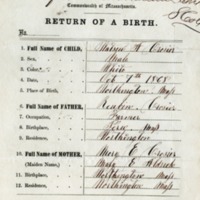 Commonwealth of Massachusetts.
RETURN OF A BIRTH.
No.
1. Full Name of CHILD, Warren A. Crosier
2. Sex, Male
3. Color, White
4. Date, Oct 7th 1808
5. Place of Birth, Worthington Mass
6. Full Name of FATHER, Crosier
7. Occupation, Farmer
8. Birthplace, Peru, Mass
9. Residence, Worthington
10. Full Name of MOTHER, Mary E Crosier
(Maiden Name) Mary E
11. Birthplace, Worthington Mass
12. Residence, Worthington Mass